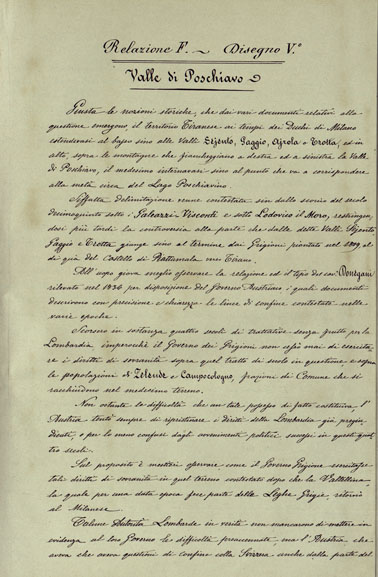 Relazione F. — Disegno V.°
Valle di Poschiavo
Giusta le nozioni storiche, che dai vari documenti relativi alla
questione emergono il territorio Tiranese ai tempi dei Duchi di Milano
estendevasi al basso sino alle Valli Sejento, Saggio, Ajrola e Trotta, ed in
alto, sopra le montagne che fiancheggiano a destra ed a sinistra la Valle
di Poschiavo, il medesimo internavasi sino al punto che va a corrispondere
alla metà circa del Lago Poschiavino
Siffatta delimitazione venne contestata sin dallo scorcio del secolo
decimoquinto sotto i Galeazzi Visconti e sotto Lodovico il Moro, restringen
dosi più tardi la controversia alla parte che dalle dette Valli
Saggio e Trotta giunge sino al termine dai Grigioni piantato nel
di qua del Castello di Piattamala verso Tirano.
All'uopo giova meglio osservare la relazione ed il tipo del cav. Donegani
rilevato nel 1836 per disposizione del Governo Austriaco i quali documenti
descrivono con precisione e chiarezza le linee di confine contestate nelle
varie epoche.
Scorsero in sostanza quattro secoli di trattative senza frutto per la
Lombardia imperocchè il Governo dei Grigioni non cessò mai di esercita
re i diritti di sovranità sopra quel tratto di suolo in questione e sopra
le popolazioni di Zelende e Campocologno, frazioni di Comune che si
racchiudono nel medesimo terreno.
Non ostante la difficoltà che un tale possesso di fatto costituiva, l'
Austria tentò sempre di ripristinare i diritti della Lombardia già pregiu
dicati, o per lo meno confusi dagli avvenimenti politici successi in questi quat
tro secoli.
Sul proposito è mestieri osservare come il Governo Grigione esercitasse
tali diritti di sovranità in quel terreno contestato dopo che la Valtellina,
la quale per una data epoca fece parte delle Leghe Grigie, ritornò
al Milanese.
Talune Autorità Lombarde in verità non mancarono di mettere in
evidenza al loro Governo le difficoltà preaccennate, ma l'Austria che
aveva che avea questioni di confine colla Svizzera anche dalla parte del